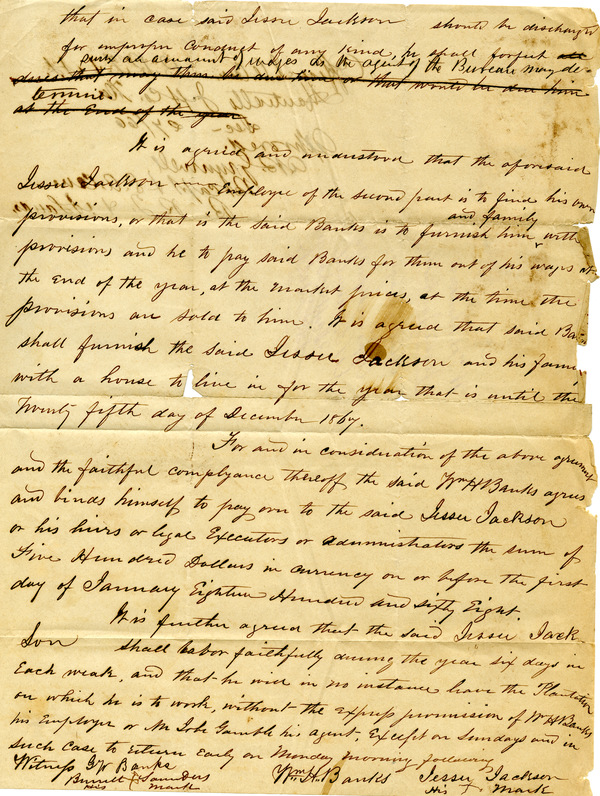 that in case said Jessee Jackson should be discharged
for improper conduct of any kind, he shall forfeit all
such an amount of wages as the agent of the Bureau may de-
dues that may then be due him or that would be due him
termine.
at the End of the year
It is agreed and understood that the aforesaid
Jessee Jackson Employee of the second part is to find his own
and family
provisions, or that is the said Banks is to furnish him with
provisions and he to pay said Banks for them out of his wages at
the End of the year, at the market prices, at the time the
provisions are sold to him. It is agreed that said Ba-
shall furnish the said Jessee Jackson and his fami
with a house to live in for the year that is until the
Twenty fifth day of December 1867.
For and in consideration of the above agreement
and the faithful complyance thereoff the said Wm H Banks agrees
and binds himself to pay over to the said Jessee Jackson
or his heirs or legal Executors or administrators the sum of
Five Hundred Dollars in currency on or before the first
day of January Eighteen Hundred and sixty Eight.
It is further agreed that the said Jessee Jack-
Son shall labor faithfully during the year six days in
Each weak, and that he will in no instance leave the Plantation
on which he is to work, without the Express permission of Wm H Banks
his Employer or Mr Gamble his agent, Except on Sundays and in
such case to return Early on Monday morning following
Witness Banks
Burrell X Saunders Wm H. Banks Jessee X Jackson
His Mark His Mark